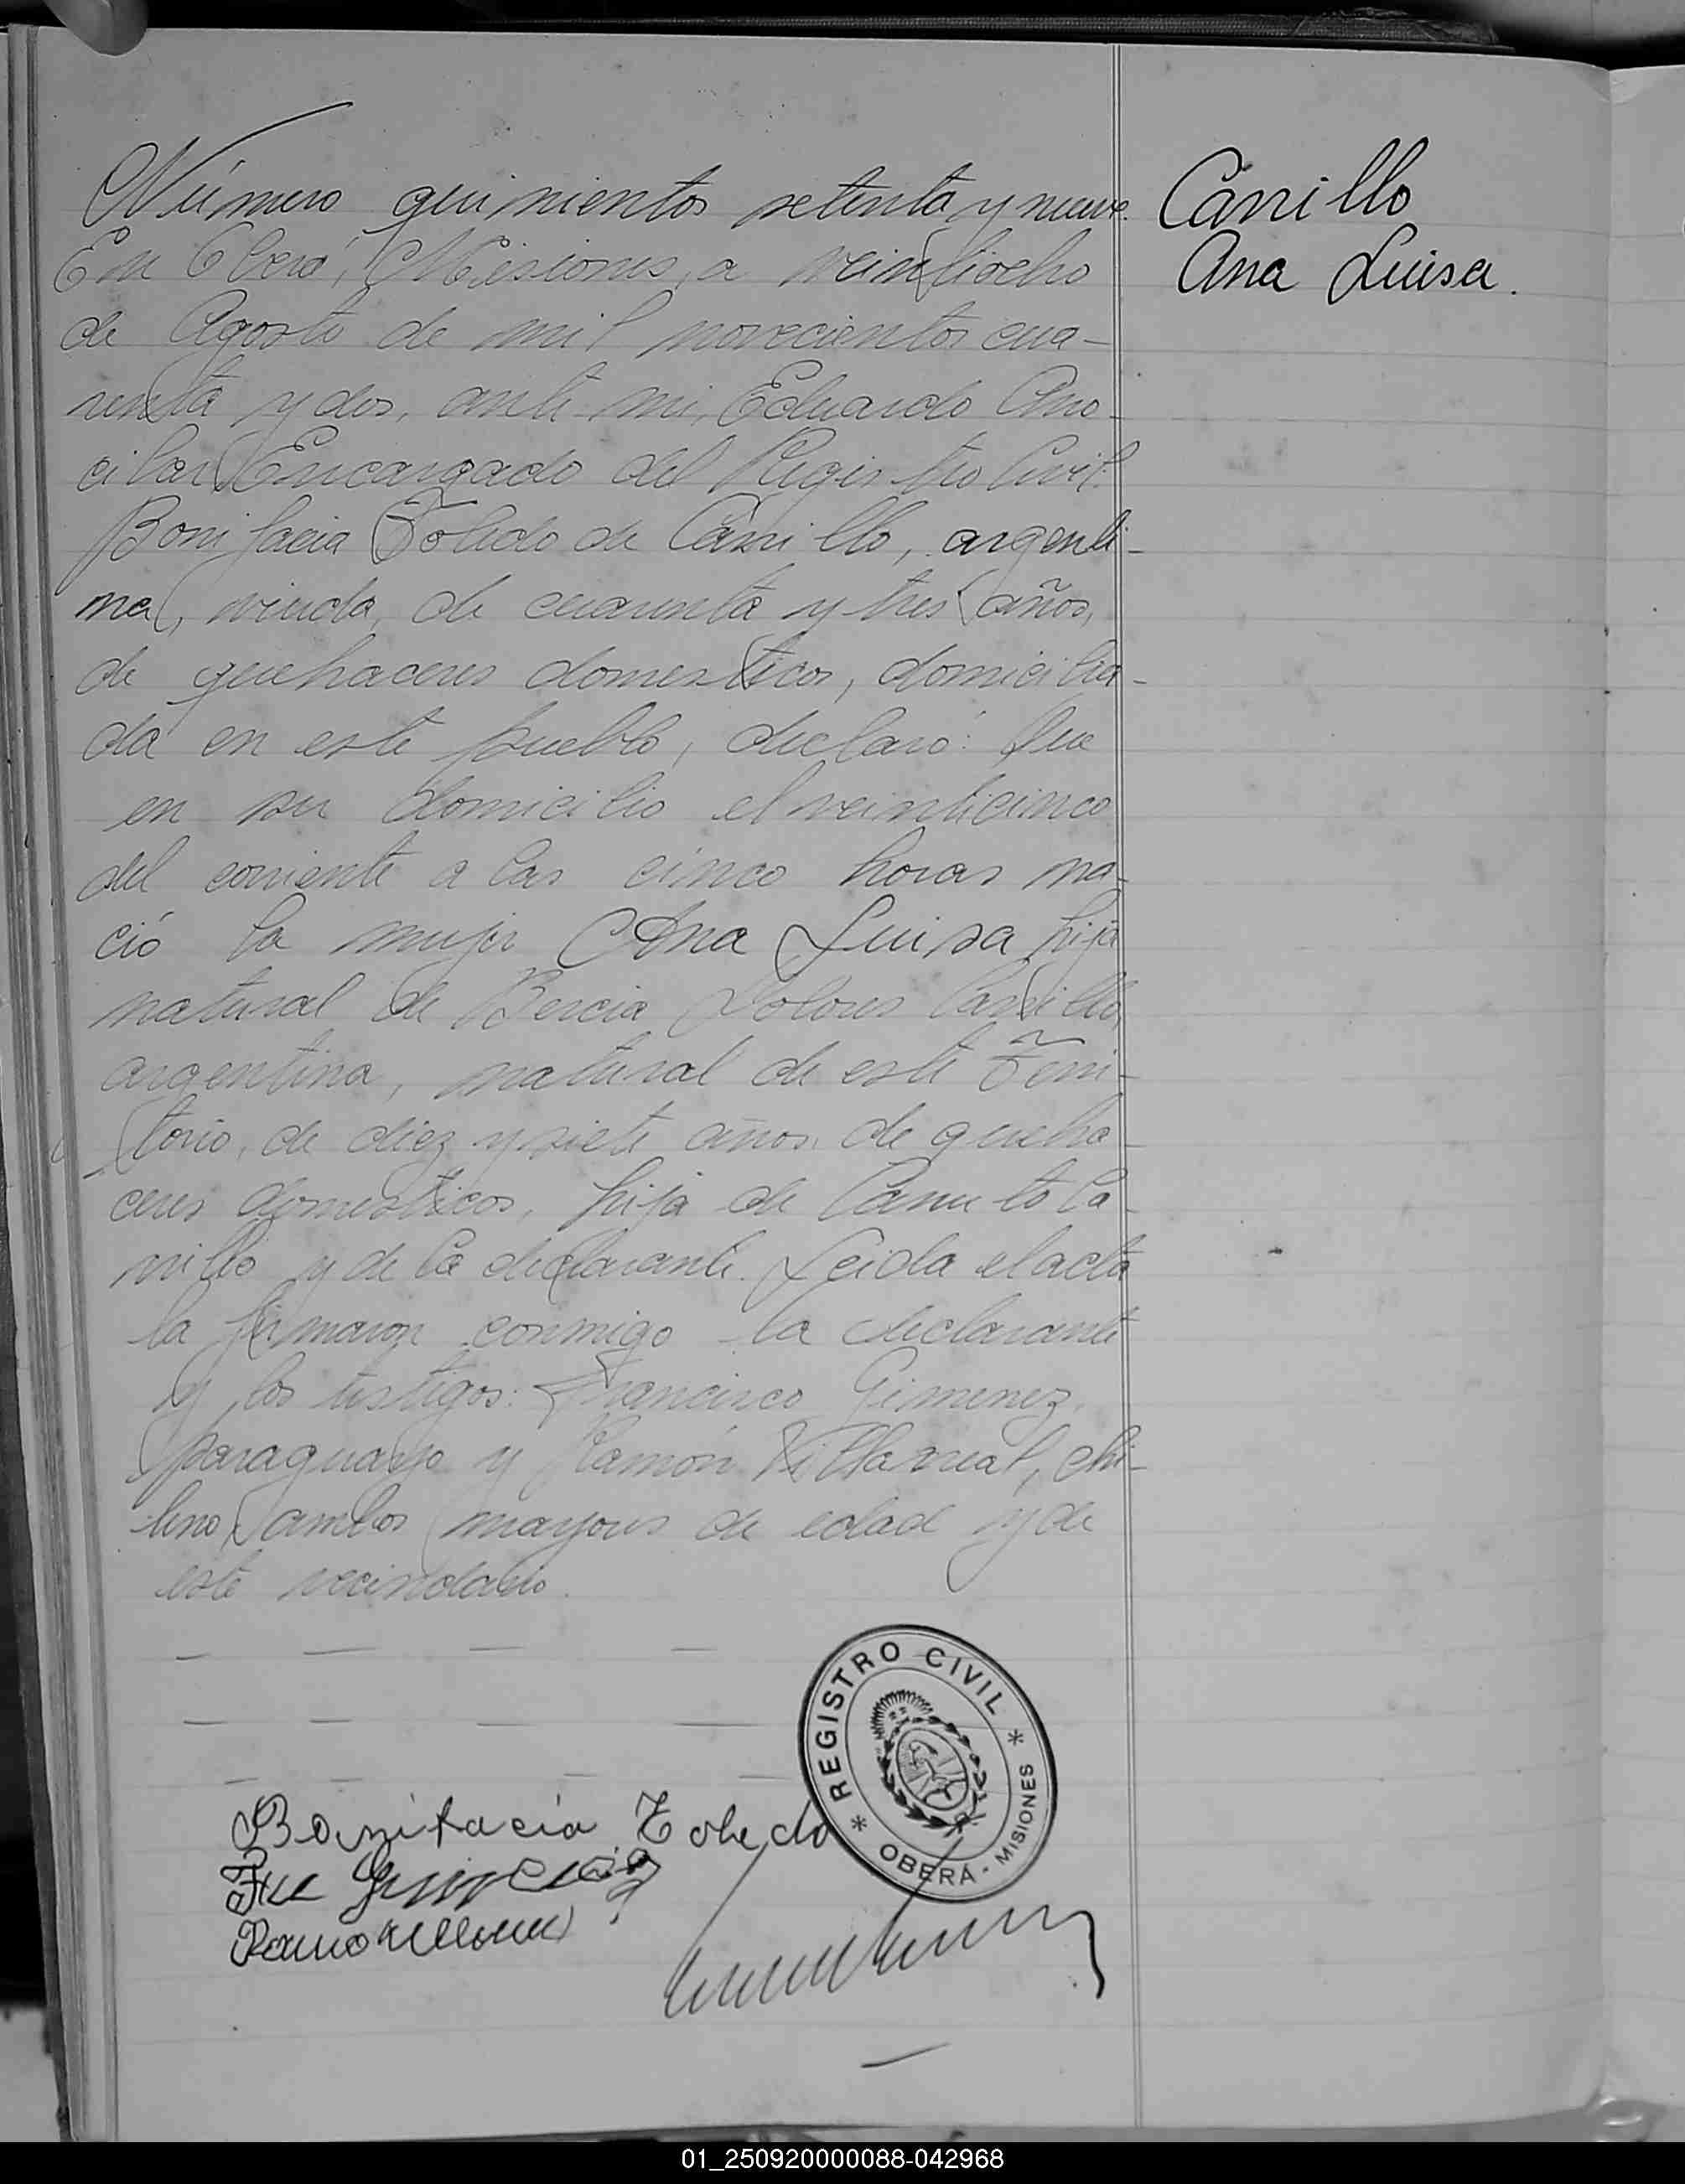 Número quinientos setenta y nueve.
Carrillo
En Oberá, Misiones, a veintiocho
Ana Luisa.
de Agosto de mil novecientos cua-
renta y dos, ante mi, Eduardo
Encargado del Registro Civil.
Bonifacia Toledo de Carrillo, argenti-
na, viuda, de cuarenta y tres años,
de quehaceres domesticos, domicilia-
da en este pueblo, declaró: Que
en su domicilio el veinticinco
del corriente a las cinco horas na-
ció la mujer Ana Luisa hija
natural de Bercia Dolores Carrillo,
argentina, natural de este Terri-
torio, de diez y siete años, de queha-
ceres domesticos, hija de Canuto Ca-
rrillo y de la declarante. Leida el acta
la firmaron conmigo la declarante
y los testigos: Francisco Gimenez,
paraguayo y Ramón Villarreal, chi-
leno, ambos mayores de edad y de
este vecindario.
REGISTRO CIVIL
* OBERÁ - MISIONES *
Bonifacia Toledo
01_250920000088-042968